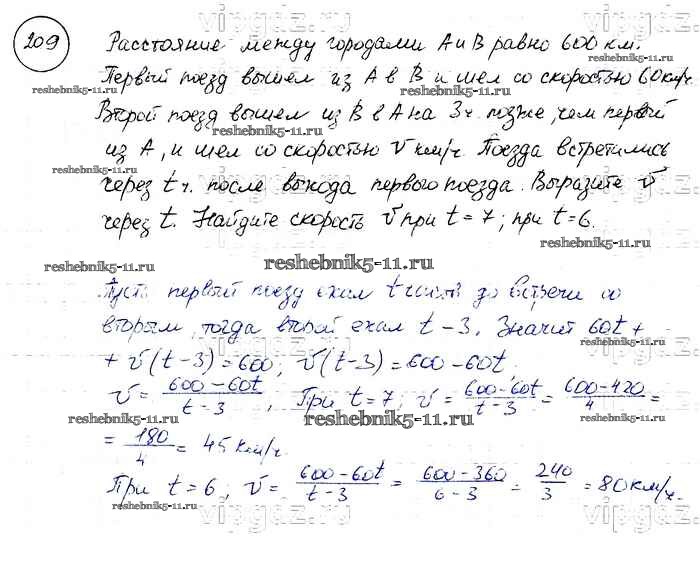 209 Расстояние между городами А и В равно 600 км.
Первый поезд вышел из А в В и шел со скоростью 60 км/ч.
Второй поезд вышел из В в А на 3 ч. позже, чем первый
из А, и шел со скоростью v км/ч. Поезда встретились
через t ч. после выхода первого поезда. Выразите v
через t. Найдите скорость v при t = 7; при t = 6.
Пусть первый поезд ехал t часов до встречи со
вторым, тогда второй ехал t - 3. Значит 60t +
+ v(t-3) = 600; v(t-3) = 600 - 60t,
v = (600 - 60t)/(t - 3), При t = 7; v = (600-60t)/(t-3) = (600-420)/4 =
= 180/4 = 45 км/ч.
При t = 6; v = (600-60t)/(t-3) = (600-360)/(6-3) = 240/3 = 80 км/ч.
vipgdz.ru
reshebnik5-11.ru